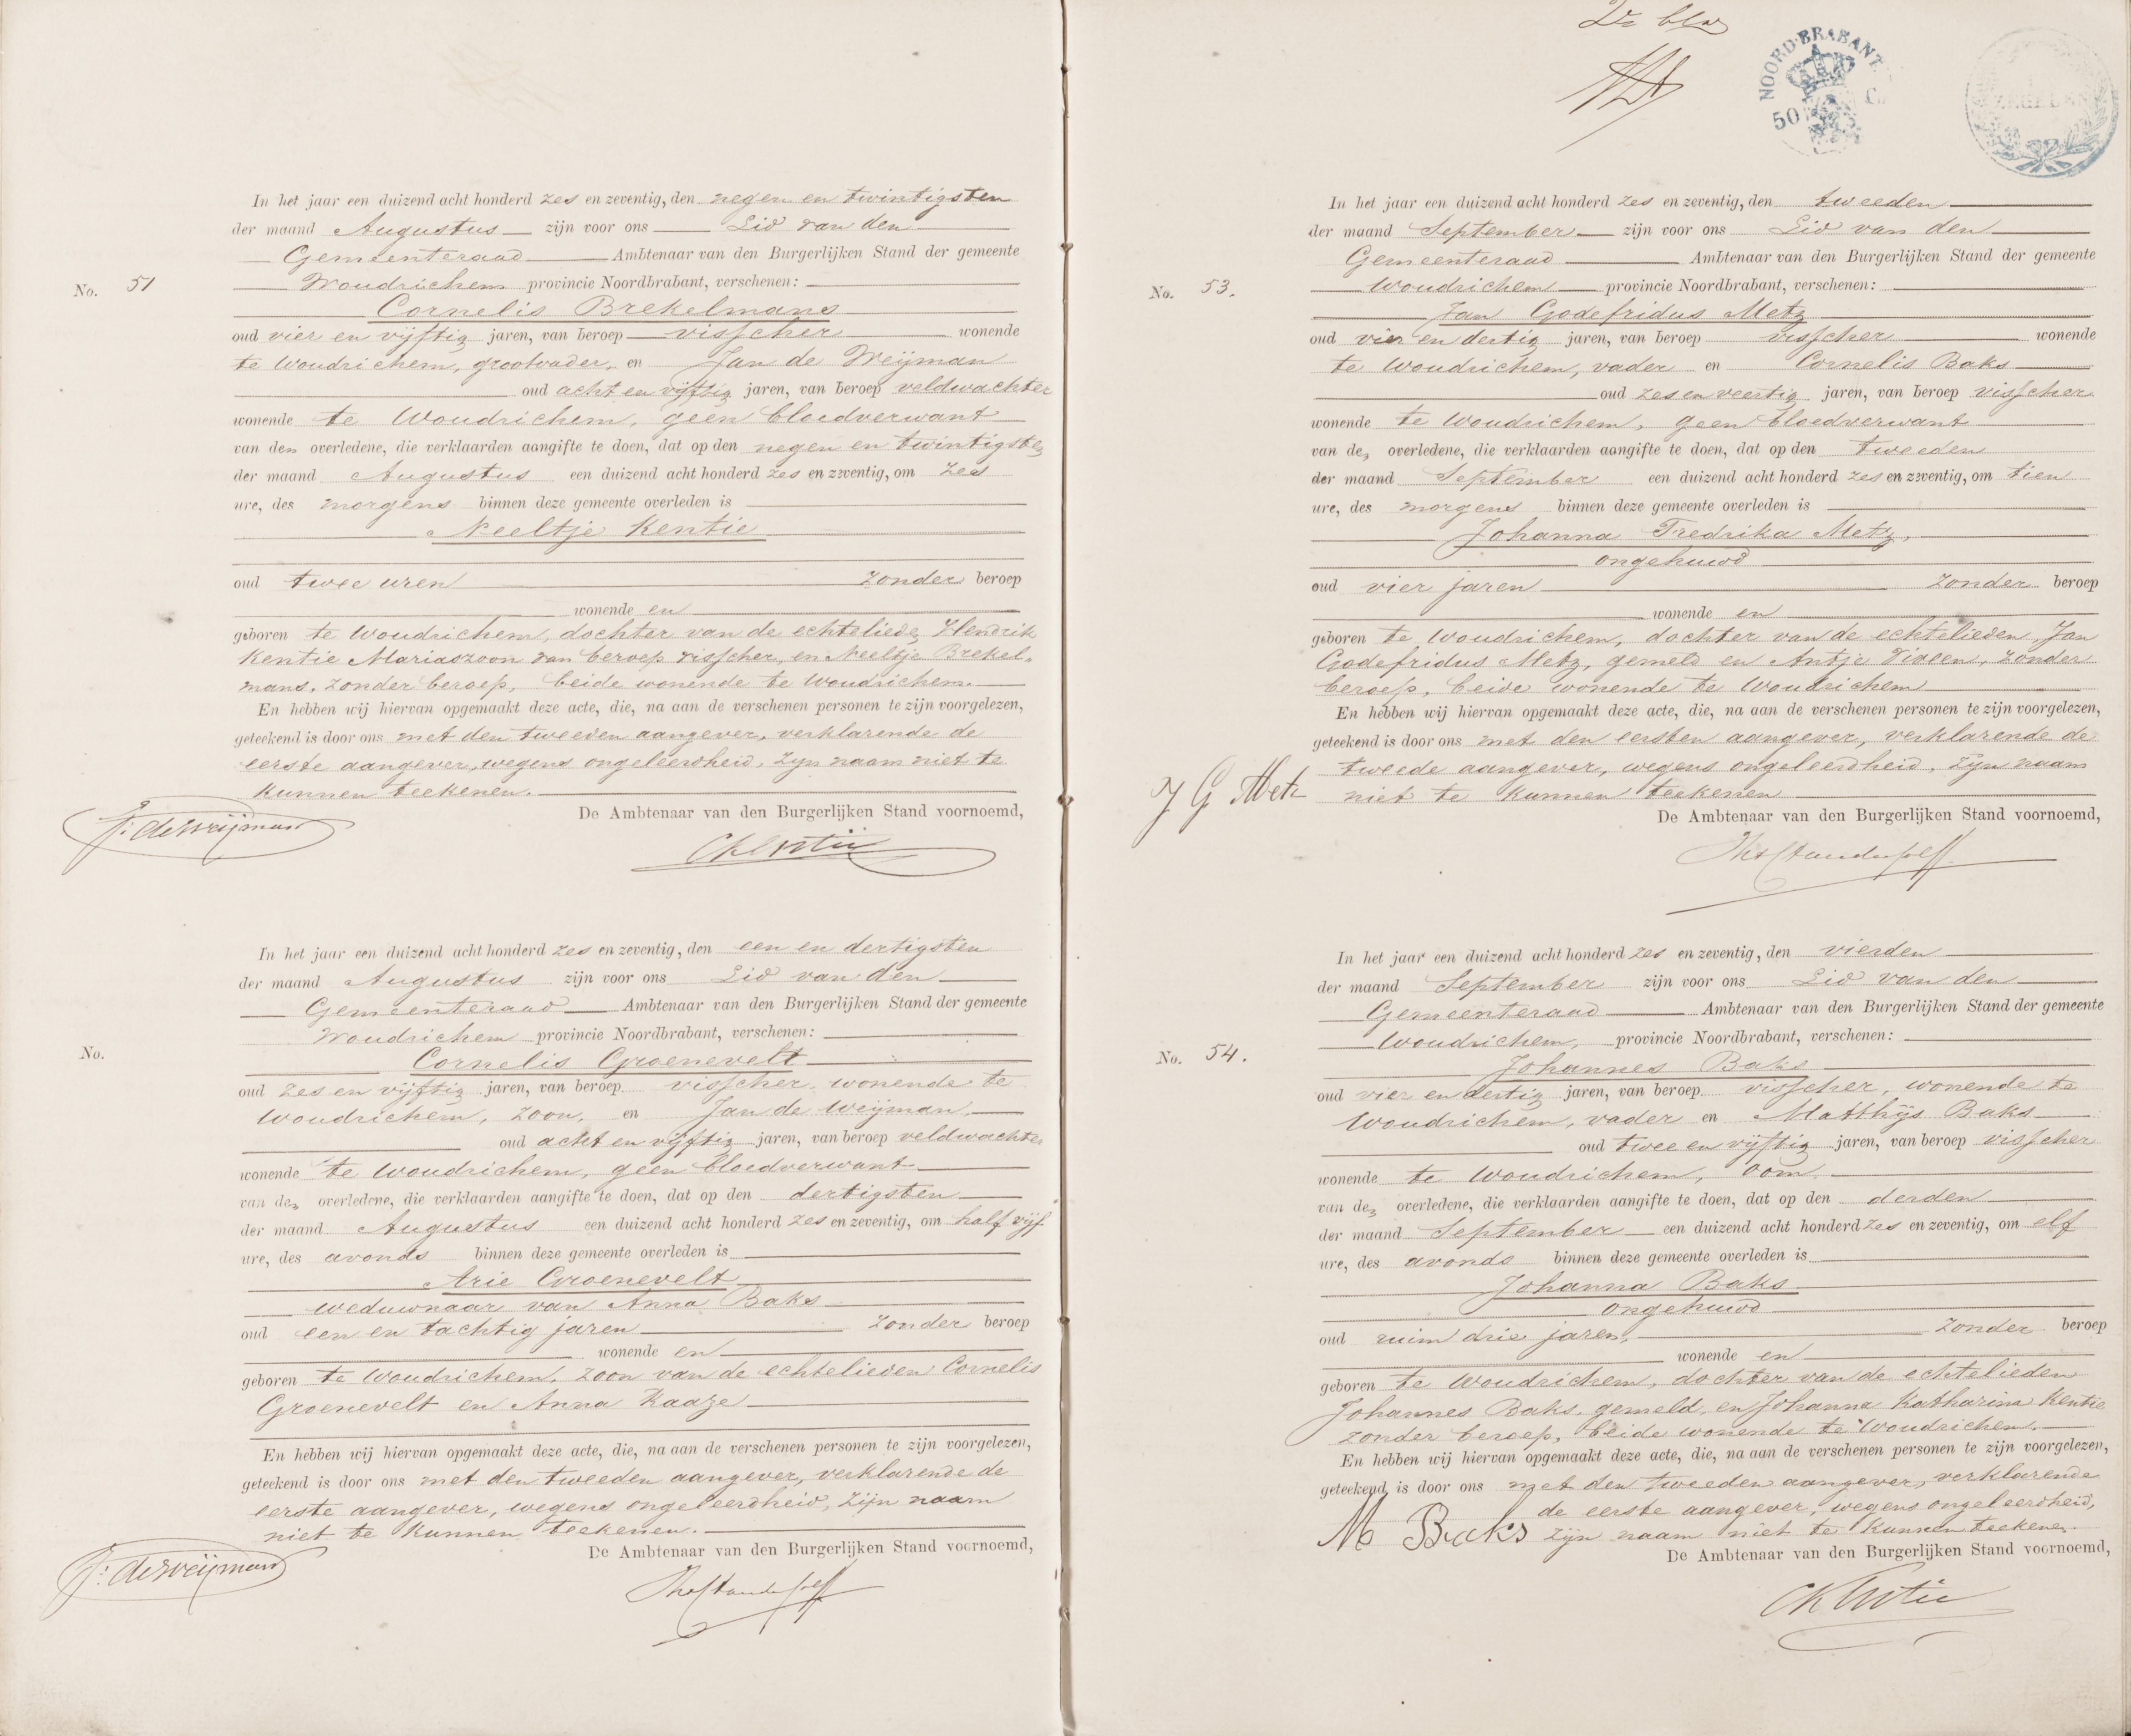 No. 51
In het jaar een duizend acht honderd zes en zeventig, den negen en twintigsten
der maand Augustus zijn voor ons Lid van den
Gemeenteraad Ambtenaar van den Burgerlijken Stand der gemeente
Woudrichem provincie Noordbrabant, verschenen:
Cornelis Brekelmans
oud vier en vijftig jaren, van beroep visscher wonende
te Woudrichem, grootvader, en Jan de Weijman
oud acht en vijftig jaren, van beroep veldwachter
wonende te Woudrichem, geen bloedverwant
van den overledene, die verklaarden aangifte te doen, dat op den negen en twintigsten
der maand Augustus een duizend acht honderd zes en zeventig, om zes
ure, des morgens binnen deze gemeente overleden is
Neeltje Kentie
oud twee uren zonder beroep
wonende en
geboren te Woudrichem, dochter van de echtelieden Hendrik
Kentie Mariaszoon van beroep visscher, en Neeltje Brekel-
mans, zonder beroep, beide wonende te Woudrichem.
En hebben wij hiervan opgemaakt deze acte, die, na aan de verschenen personen te zijn voorgelezen,
geteekend is door ons met den tweeden aangever, verklarende de
eerste aangever, wegens ongeleerdheid, zijn naam niet te
kunnen teekenen.
De Ambtenaar van den Burgerlijken Stand voornoemd,
J: de Weijman
CKentie
No.
In het jaar een duizend acht honderd zes en zeventig, den een en dertigsten
der maand Augustus zijn voor ons Lid van den
Gemeenteraad Ambtenaar van den Burgerlijken Stand der gemeente
Woudrichem provincie Noordbrabant, verschenen:
Cornelis Groenevelt
oud zes en vijftig jaren, van beroep visscher, wonende te
Woudrichem, zoon, en Jan de Weijman
oud acht en vijftig jaren, van beroep veldwachter
wonende te Woudrichem, geen bloedverwant
van den overledene, die verklaarden aangifte te doen, dat op den dertigsten
der maand Augustus een duizend acht honderd zes en zeventig, om half vijf
ure, des avonds binnen deze gemeente overleden is
Arie Groenevelt
weduwnaar van Anna Baks
oud een en tachtig jaren zonder beroep
wonende en
geboren te Woudrichem, zoon van de echtelieden Cornelis
Groenevelt en Anna Kaaze
En hebben wij hiervan opgemaakt deze acte, die, na aan de verschenen personen te zijn voorgelezen,
geteekend is door ons met den tweeden aangever, verklarende de
eerste aangever, wegens ongeleerdheid, zijn naam
niet te kunnen teekenen.
De Ambtenaar van den Burgerlijken Stand voornoemd,
J: de Weijman
NOORD-BRABANT
50 C.
No. 53.
In het jaar een duizend acht honderd zes en zeventig, den tweeden
der maand September zijn voor ons Lid van den
Gemeenteraad Ambtenaar van den Burgerlijken Stand der gemeente
Woudrichem provincie Noordbrabant, verschenen:
Jan Godefridus Metz
oud vier en dertig jaren, van beroep visscher wonende
te Woudrichem, vader en Cornelis Baks
oud zes en veertig jaren, van beroep visscher
wonende te Woudrichem, geen bloedverwant
van de overledene, die verklaarden aangifte te doen, dat op den tweeden
der maand September een duizend acht honderd zes en zeventig, om tien
ure, des morgens binnen deze gemeente overleden is
Johanna Fredrika Metz,
ongehuwd
oud vier jaren zonder beroep
wonende en
geboren te Woudrichem, dochter van de echtelieden Jan
Godefridus Metz, gemeld en Antje Vieen, zonder
beroep, beide wonende te Woudrichem
En hebben wij hiervan opgemaakt deze acte, die, na aan de verschenen personen te zijn voorgelezen,
geteekend is door ons met den eersten aangever, verklarende de
tweede aangever, wegens ongeleerdheid, zijn naam
niet te kunnen teekenen
J G Metz
De Ambtenaar van den Burgerlijken Stand voornoemd,
No. 54.
In het jaar een duizend acht honderd zes en zeventig, den vierden
der maand September zijn voor ons Lid van den
Gemeenteraad Ambtenaar van den Burgerlijken Stand der gemeente
Woudrichem, provincie Noordbrabant, verschenen:
Johannes Baks
oud vier en dertig jaren, van beroep visscher, wonende te
Woudrichem, vader en Matthijs Baks
oud twee en vijftig jaren, van beroep visscher
wonende te Woudrichem, oom.
van de overledene, die verklaarden aangifte te doen, dat op den derden
der maand September een duizend acht honderd zes en zeventig, om elf
ure, des avonds binnen deze gemeente overleden is
Johanna Baks
ongehuwd
oud ruim drie jaren, zonder beroep
wonende en
geboren te Woudrichem, dochter van de echtelieden
Johannes Baks, gemeld, en Johanna Katharina Kentie
zonder beroep, beide wonende te Woudrichem.
En hebben wij hiervan opgemaakt deze acte, die, na aan de verschenen personen te zijn voorgelezen,
geteekend is door ons met den tweeden aangever, verklarende
de eerste aangever, wegens ongeleerdheid,
M Baks zijn naam niet te kunnen teekenen.
De Ambtenaar van den Burgerlijken Stand voornoemd,
CKentie